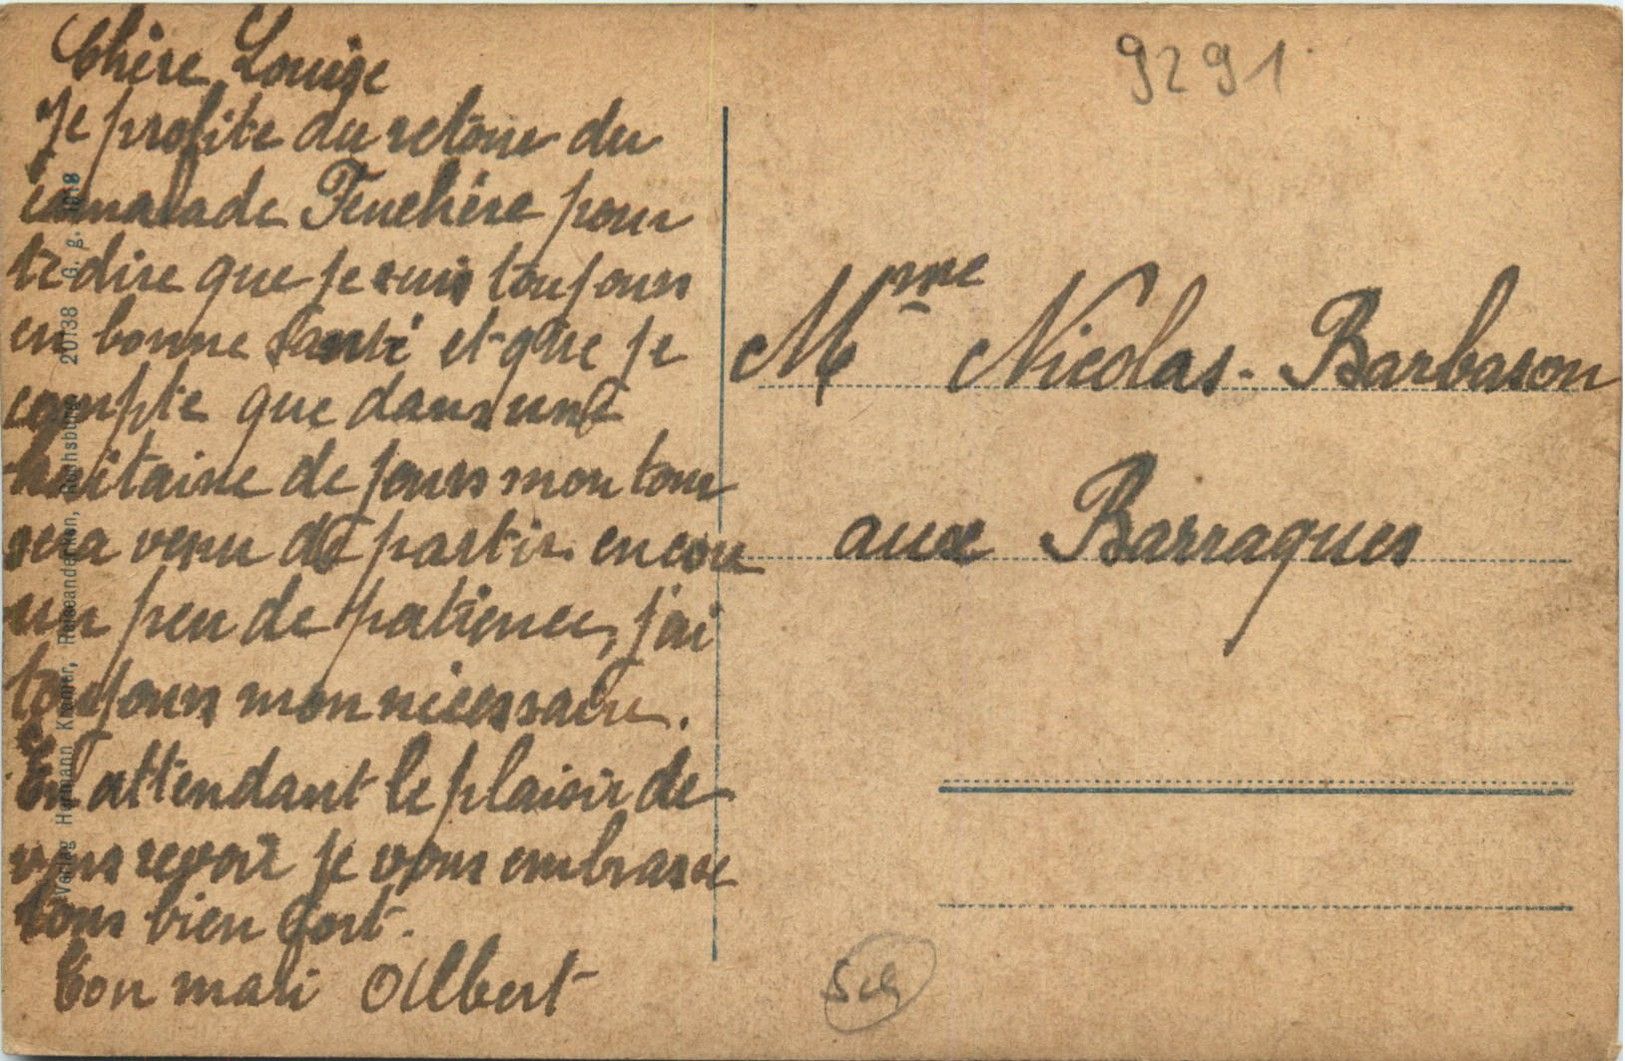 Chère Louise
Je profite du retour du
camarade Feuchère pour
te dire que je suis toujours
en bonne santé et que je
compte que dans une
huitaine de jours mon tour
sera venu de partir encore
un peu de patience, j'ai
toujours mon nécessaire.
En attendant le plaisir de
vous revoir je vous embrasse
tous bien fort.
Ton mari Albert
Verlag Hermann Kramer, Reiseandenken, 20138 G. g. 1918
9291
Mme Nicolas-Barbason
aux Barraques